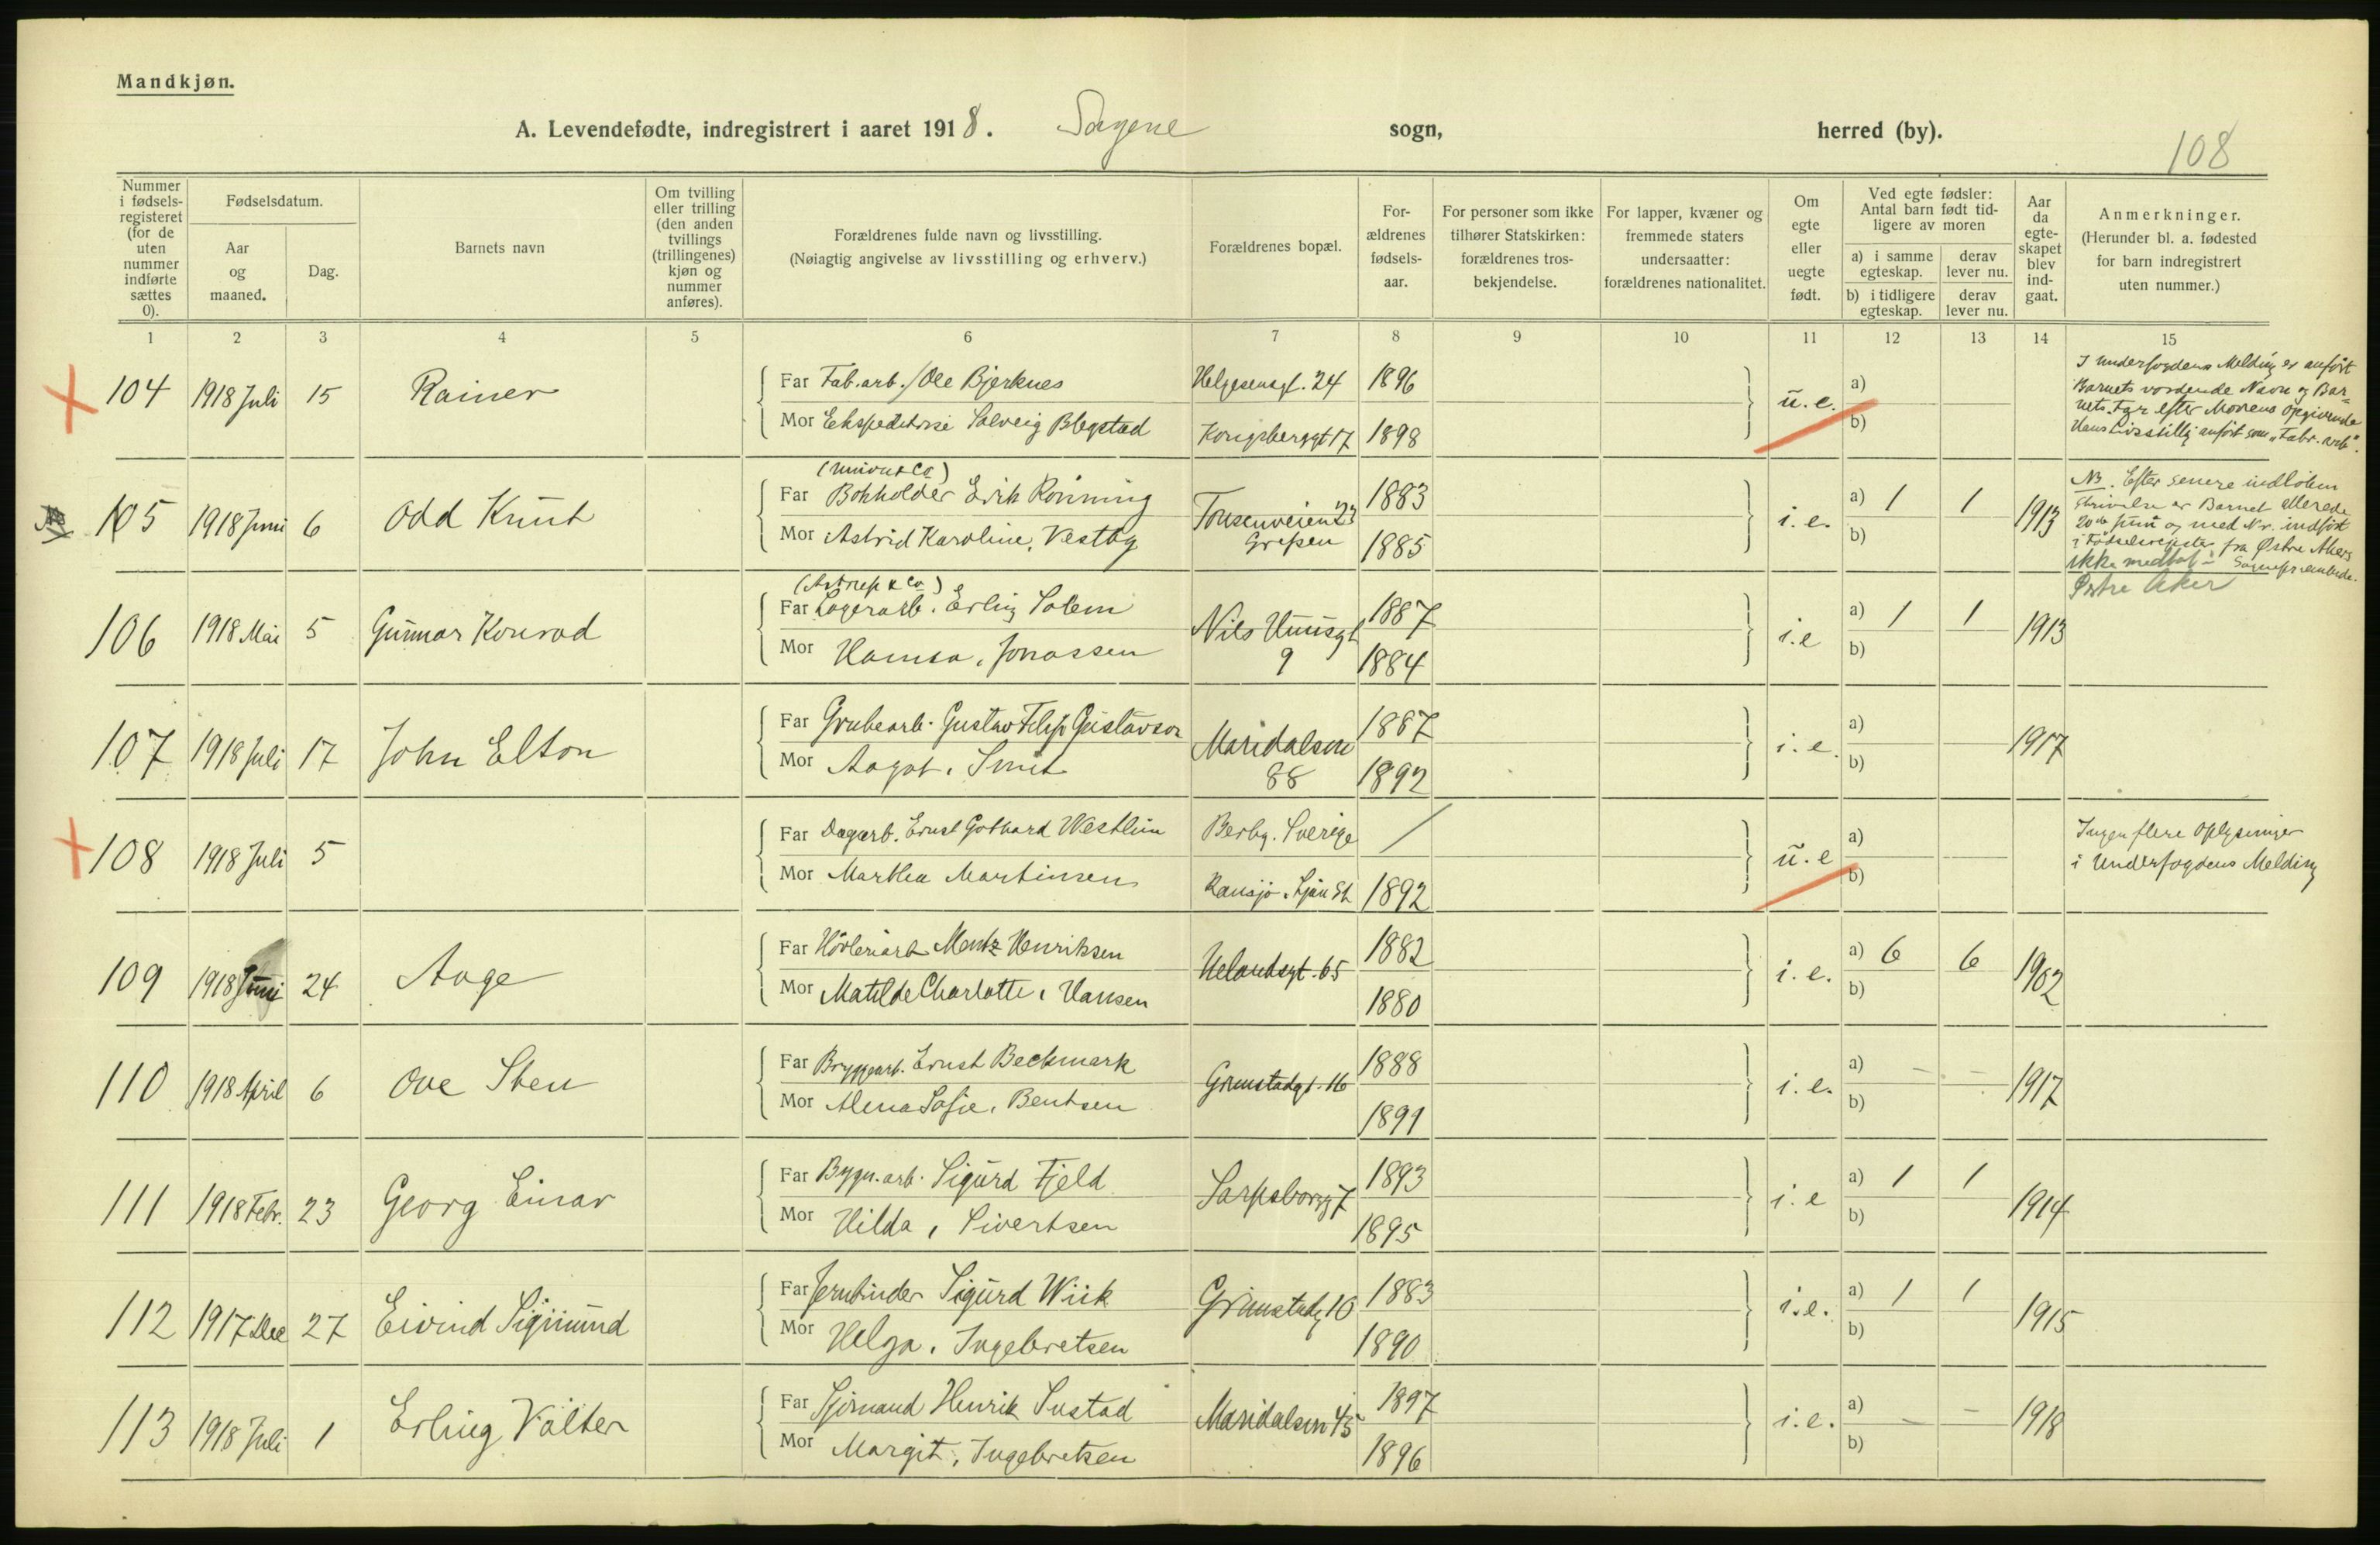 Mandkjøn.
A. Levendefødte, indregistrert i aaret 1918. Sagene sogn, herred (by).
108
Nummer i fødsels-registeret (for de uten nummer indførte sættes 0).
Fødselsdatum.
Aar og maaned.
Dag.
Barnets navn
Om tvilling eller trilling (den anden tvillings (trillingenes) kjøn og nummer anføres).
Forældrenes fulde navn og livsstilling.
(Nøiagtig angivelse av livsstilling og erhverv.)
Forældrenes bopæl.
For-ældrenes fødsels-aar.
For personer som ikke tilhører Statskirken: forældrenes tros-bekjendelse.
For lapper, kvæner og fremmede staters undersaatter: forældrenes nationalitet.
Om egte eller uegte født.
Ved egte fødsler: Antal barn født tid-ligere av moren
a) i samme egteskap.
derav lever nu.
b) i tidligere egteskap.
derav lever nu.
Aar da egte-skapet blev ind-gaat.
Anmerkninger.
(Herunder bl. a. fødested for barn indregistrert uten nummer.)
1 2 3 4 5 6 7 8 9 10 11 12 13 14 15
104 1918 Juli 15 Rainer
Far Fab. arb. Ole Bjerknes Helgesensgt. 24 1896
Mor Ekspeditrise Solveig Blegstad Kongsberggt 17 1898
u. e. a) b)
I underfogdens Melding er anført
Barnets vordende Navn og Bar-
nets Far efter Morens Opgivende
Hans Livsstillg anført som "Fabr. arb".
105 1918 Juni 6 Odd Knut
Far Bokholder Erik Rönning Tonsenveien 23 1883
Mor Astrid Karoline, Vestby Grefsen 1885
i. e. a) 1 1 b) 1913
NB. Efter senere indløben
Skrivelse er Barnet allerede
20de Juni og med Nr. indført
i Fødselsregister fra Østre Akers
ikke medtat
Østre Aker
106 1918 Mai 5 Gunnar Konrad
Far Lagerarb. Erling Solem Nils Huusgt 1887
Mor Hansa, Jonassen 9 1884
i. e a) 1 1 b) 1913
107 1918 Juli 17 John Elton
Far Grubearb. Gustav Filip Gustavson Maridalsvn 1887
Mor Aagot, Smit 88 1892
i. e. a) b) 1917
108 1918 Juli 5
Far Dagarb. Ernst Gothard Westlin Berby. Sverige
Mor Marthea Martinsen 1892
u. e a) b)
Ingen flere Oplysninger
i Underfogdens Melding
109 1918 Juni 24 Aage
Far Høvleriarb Mentz Henriksen Uelandsgt. 65 1882
Mor Matilde Charlotte, Hansen 1880
i. e. a) 6 6 b) 1902
110 1918 April 6 Ove Sten
Far Bryggearb. Ernst Beckmark Grimstadgt. 16 1888
Mor Alena Sofie, Bentsen 1891
i. e. a) - - b) 1917
111 1918 Febr. 23 Georg Einar
Far Bygn. arb. Sigurd Fjeld Sarpsborgg 7 1893
Mor Hilda, Sivertsen 1895
i. e a) 1 1 b) 1914
112 1917 Dec 27 Eivind Sigmund
Far Jernbinder Sigurd Wiik Grimstadg 10 1883
Mor Helga, Ingebretsen 1890
i. e. a) 1 1 b) 1915
113 1918 Juli 1 Erling Valter
Far Sjömand Henrik Sustad Maridalsvn 45 1897
Mor Margit, Ingebretsen 1896
i. e. a) - - b) 1918